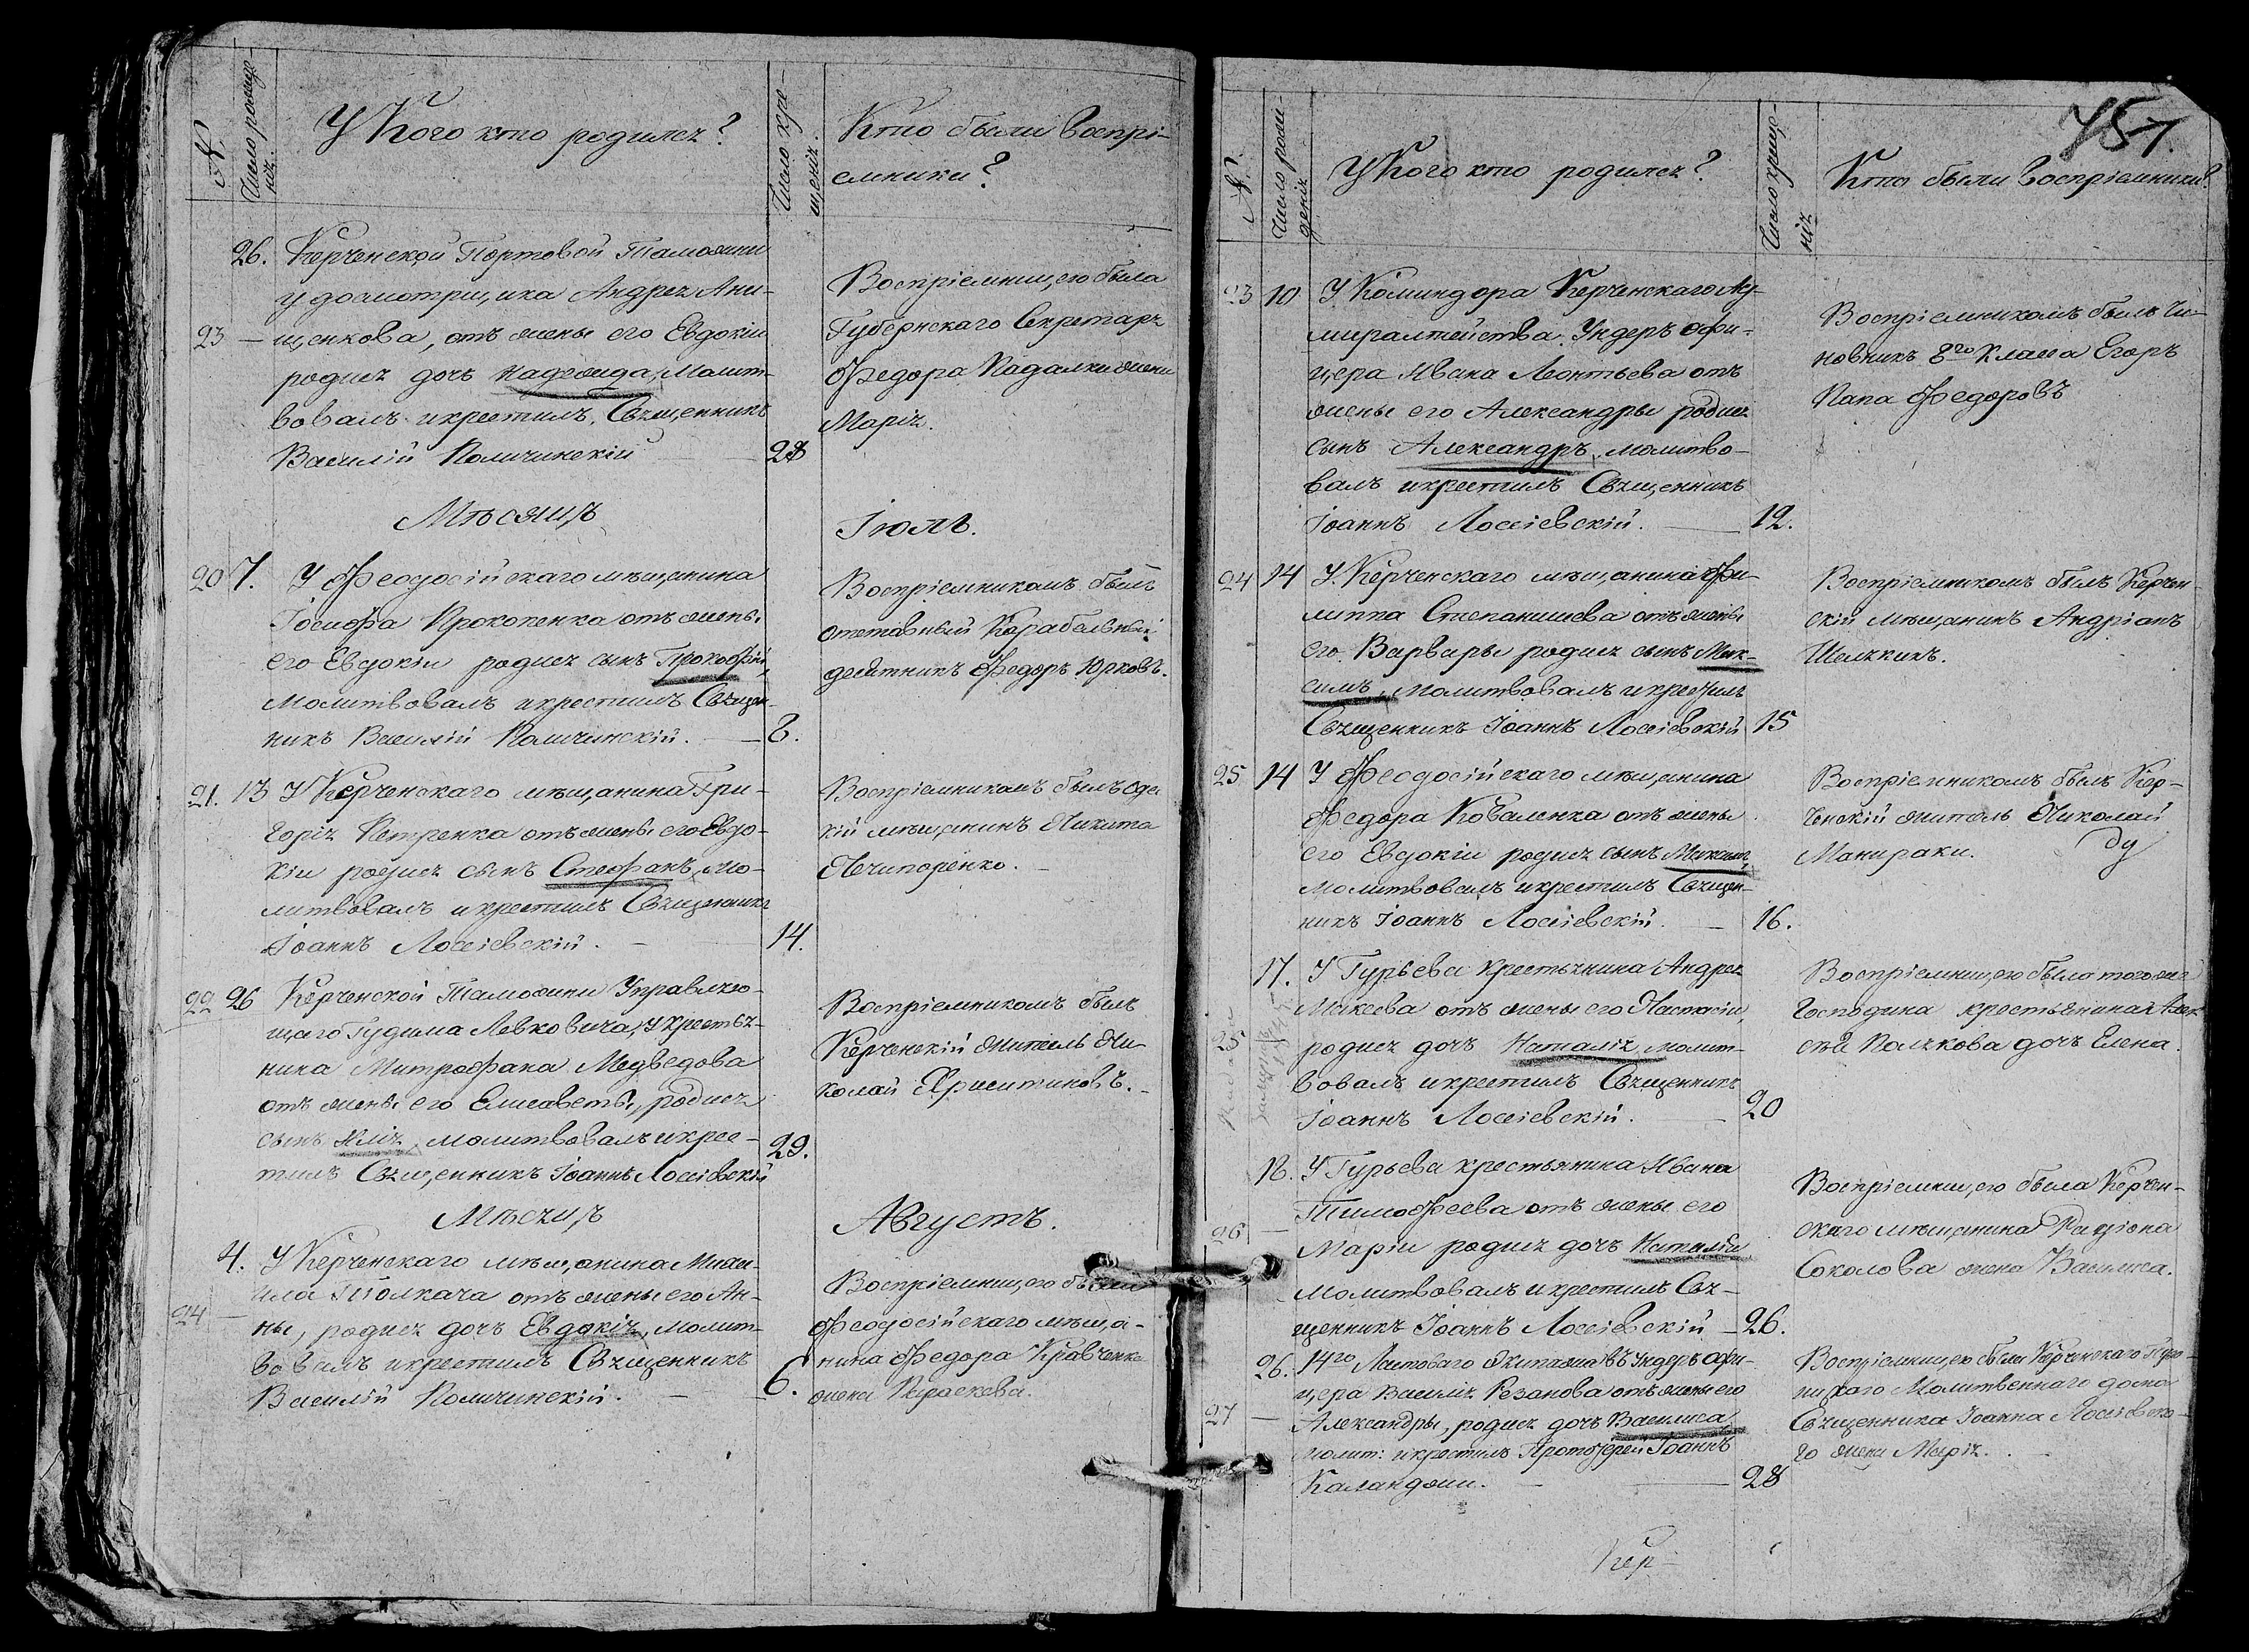 №
Число рожде-
нія.
У Кого кто родился?
Число кре-
щенія.
Кто были воспрі-
емники?
26. Керченской Портовой Таможни
у досмотрщика Андрея Ани-
23 — щенкова, отъ жены его Евдокіи
родися дочь Надежда, Молит-
вовалъ и крестилъ, Священникъ
Василій Поличинскій 28
Воспріемницею была
Губернскаго Секретаря
Федора Падалки жена
Марія.
Мѣсяцъ Іюль.
20 7. У Феодосійскаго мѣщанина
Іосифа Прокопенка отъ жены
его Евдокіи родися сынъ Прокофій,
Молитвовалъ и крестилъ Священ-
никъ Василій Поличинскій. — 8.
Воспріемникомъ былъ
отставный Корабельный
десятникъ Федоръ Юрковъ.
21. 13 У Керченскаго мѣщанина Гри-
горія Петренка отъ жены его Евдо-
кіи родися сынъ Стефанъ, мо-
литвовалъ и крестилъ Священникъ
Іоаннъ Лоссіевскій. — 14.
Воспріемникомъ былъ
кій мѣщанинъ Никита
Нечипоренко.
22 26 Керченской Таможни Управляю-
щаго Гудима Левковича, у крестья-
нина Митрофана Медведова
отъ жены его Елисаветы, родися
сынъ Илія, молитвовалъ и крес-
тилъ Священникъ Іоаннъ Лоссіевскій 29.
Воспріемникомъ былъ
Керченскій житель Ни-
колай Христиновъ.
Мѣсяцъ Августъ.
4. У Керченскаго мѣщанина Михаи-
ила Толкача отъ жены его Ан-
24 — ны, родися дочь Евдокія, молит-
вовалъ и крестилъ Священникъ
Василій Поличинскій. — 6.
Воспріемницею была
Феодосійскаго мѣща-
нина Федора Кравченка
жена Параскева.
757.
№
Число рож-
денія
У Кого кто родился?
Число креще-
нія
Кто были воспріемники?
23 10 У Командора Керченскаго Ад-
миралтейства Ундеръ офи-
цера Ивана Леонтьева отъ
жены его Александры родися
сынъ Александръ, молитво-
валъ и крестилъ Священникъ
Іоаннъ Лоссіевскій. — 12.
Воспріемникомъ былъ Чи-
новникъ 8го Класса Егоръ
Папа Федоровъ
24 14 У Керченскаго мѣщанина Фи-
липпа Степанишева отъ жены
его Варвары родися сынъ Мак-
симъ, Молитвовалъ и крестилъ
Священникъ Іоаннъ Лоссіевскій 15
Воспріемникомъ былъ Керчен-
скій мѣщанинъ Андріанъ
25 14 У Феодосійскаго мѣщанина
Федора Коваленка отъ жены
его Евдокіи родися сынъ Максимъ,
Молитвовалъ и крестилъ Священ-
никъ Іоаннъ Лоссіевскій. — 16.
Воспріемникомъ былъ Кер-
ченскій житель Николай
Манираки.
17. У Гурьева крестьянина Андрея
Макеева отъ жены его Настасіи,
25 родися дочь Наталія молит-
вовалъ и крестилъ Священникъ
Іоаннъ Лоссіевскій. — 20
Воспріемницею была того же
Господина крестьянина Алек-
сѣя Полякова дочь Елена.
18. У Гурьева крестьянина Ивана
Тимофеева отъ жены его
26 — Маріи родися дочь Наталія
молитвовалъ и крестилъ Свя-
щенникъ Іоаннъ Лоссіевскій — 26.
Воспріемницею была Керчен-
скаго мѣщанина Родіона
Соколова жена Василиса.
26. 14го Ластоваго Экипажа Ундеръ офи-
цера Василія Резанова отъ жены его
27 — Александры, родися дочь Василиса
молит: и крестилъ Протоіерей Іоаннъ
Каланджи. — 28
Воспріемницею была Керченскаго
Молитвеннаго дома
Священника Іоанна Лоссіевска-
го жена Марія.
Кер-